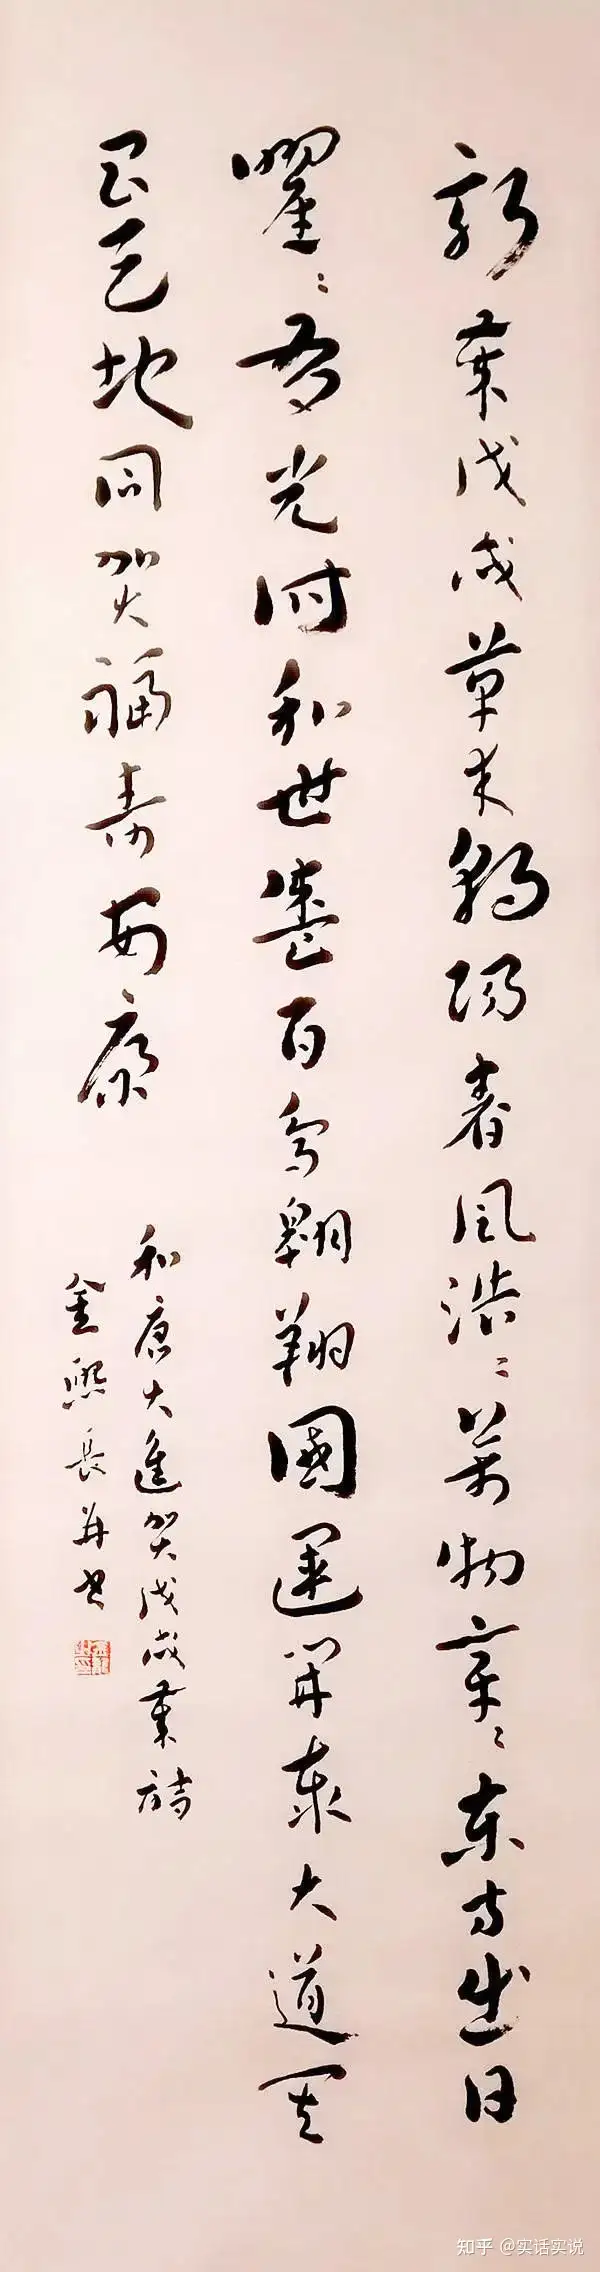 新戊戌草木朝陽春風浩浩萬物章章東方出日
曜曜光時和世盛百鳥翱翔國運開泰大道其
昌天地同賀福壽安康
和唐大進賀戊戌詩
金熙長并書
知乎 @实话实说